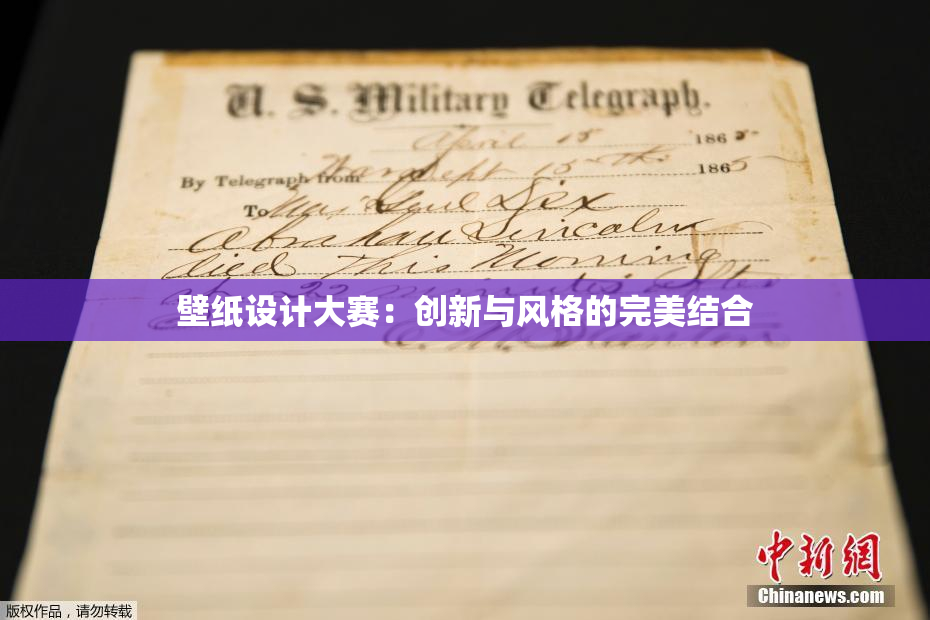 U. S. Military Telegraph.
April 15 1865.
By Telegraph from War Dept 15th 1865
To Maj Genl Dix
Abraham Lincoln
died This Morning
at 22 minutes after
壁纸设计大赛：创新与风格的完美结合
E. M. Stanton
中新网
Chinanews.com
版权作品，请勿转载